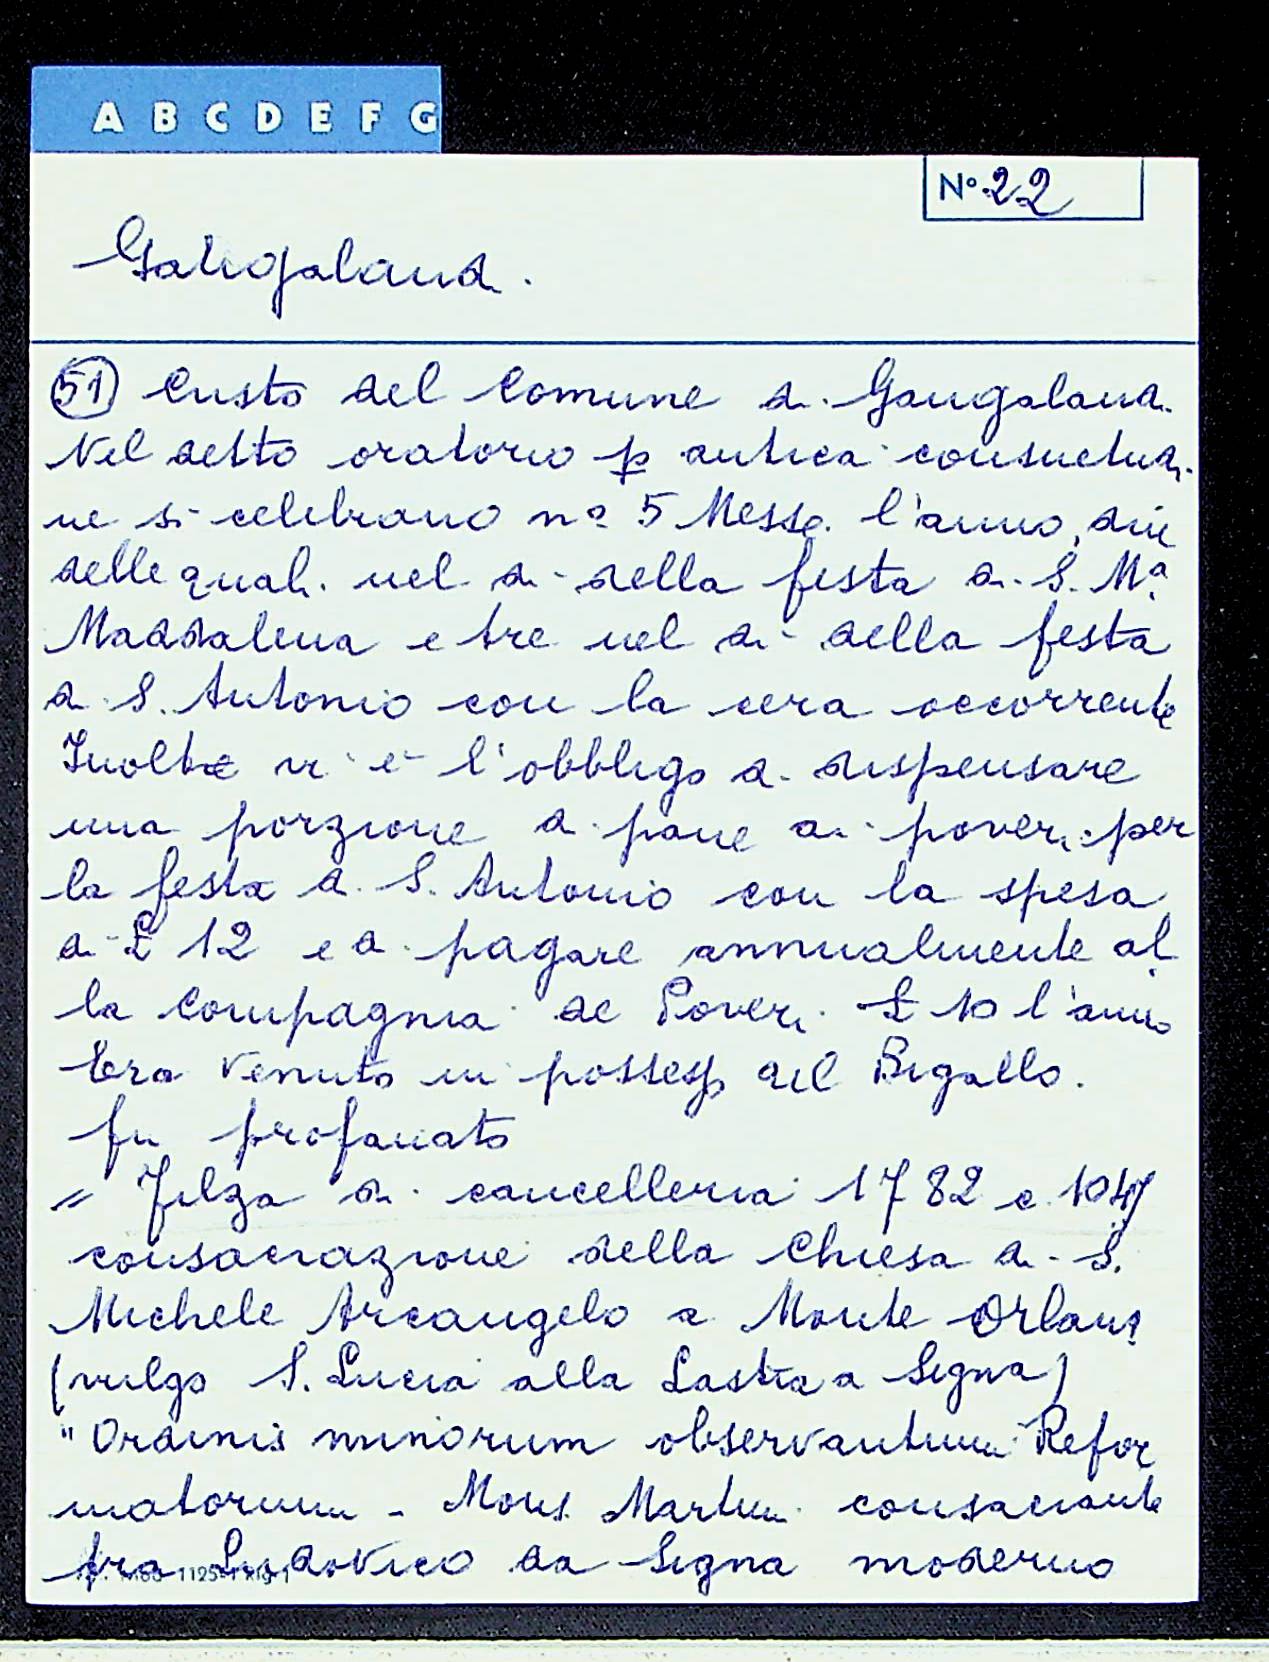 A B C D E F G
Nº 22
Gangalandi.
51 Custo del Comune di Gangalandi.
Nel detto oratorio p antica consuetudi-
ne si celebrano nº 5 Messe l'anno, due
delle quali nel dì della festa di S. Mª
Maddalena e tre nel dì della festa
di S. Antonio con la cera occorrente
Inoltre vi è l'obbligo di dispensare
una porzione di pane ai poveri per
la festa di S. Antonio con la spesa
di £ 12 e di pagare annualmente al
la Compagnia de Poveri £ 10 l'anno
Era venuto in possesso del Bigallo.
fu profanato
= Filza di cancelleria 1782 c. 1047
consacrazione della Chiesa di S.
Michele Arcangelo a Monte Orlandi
(vulgo S. Lucia alla Lastra a Signa)
"Ordinis minorum observantium Refor
matorum - Mons. Martini consacrante
fra Ludovico da Signa moderno